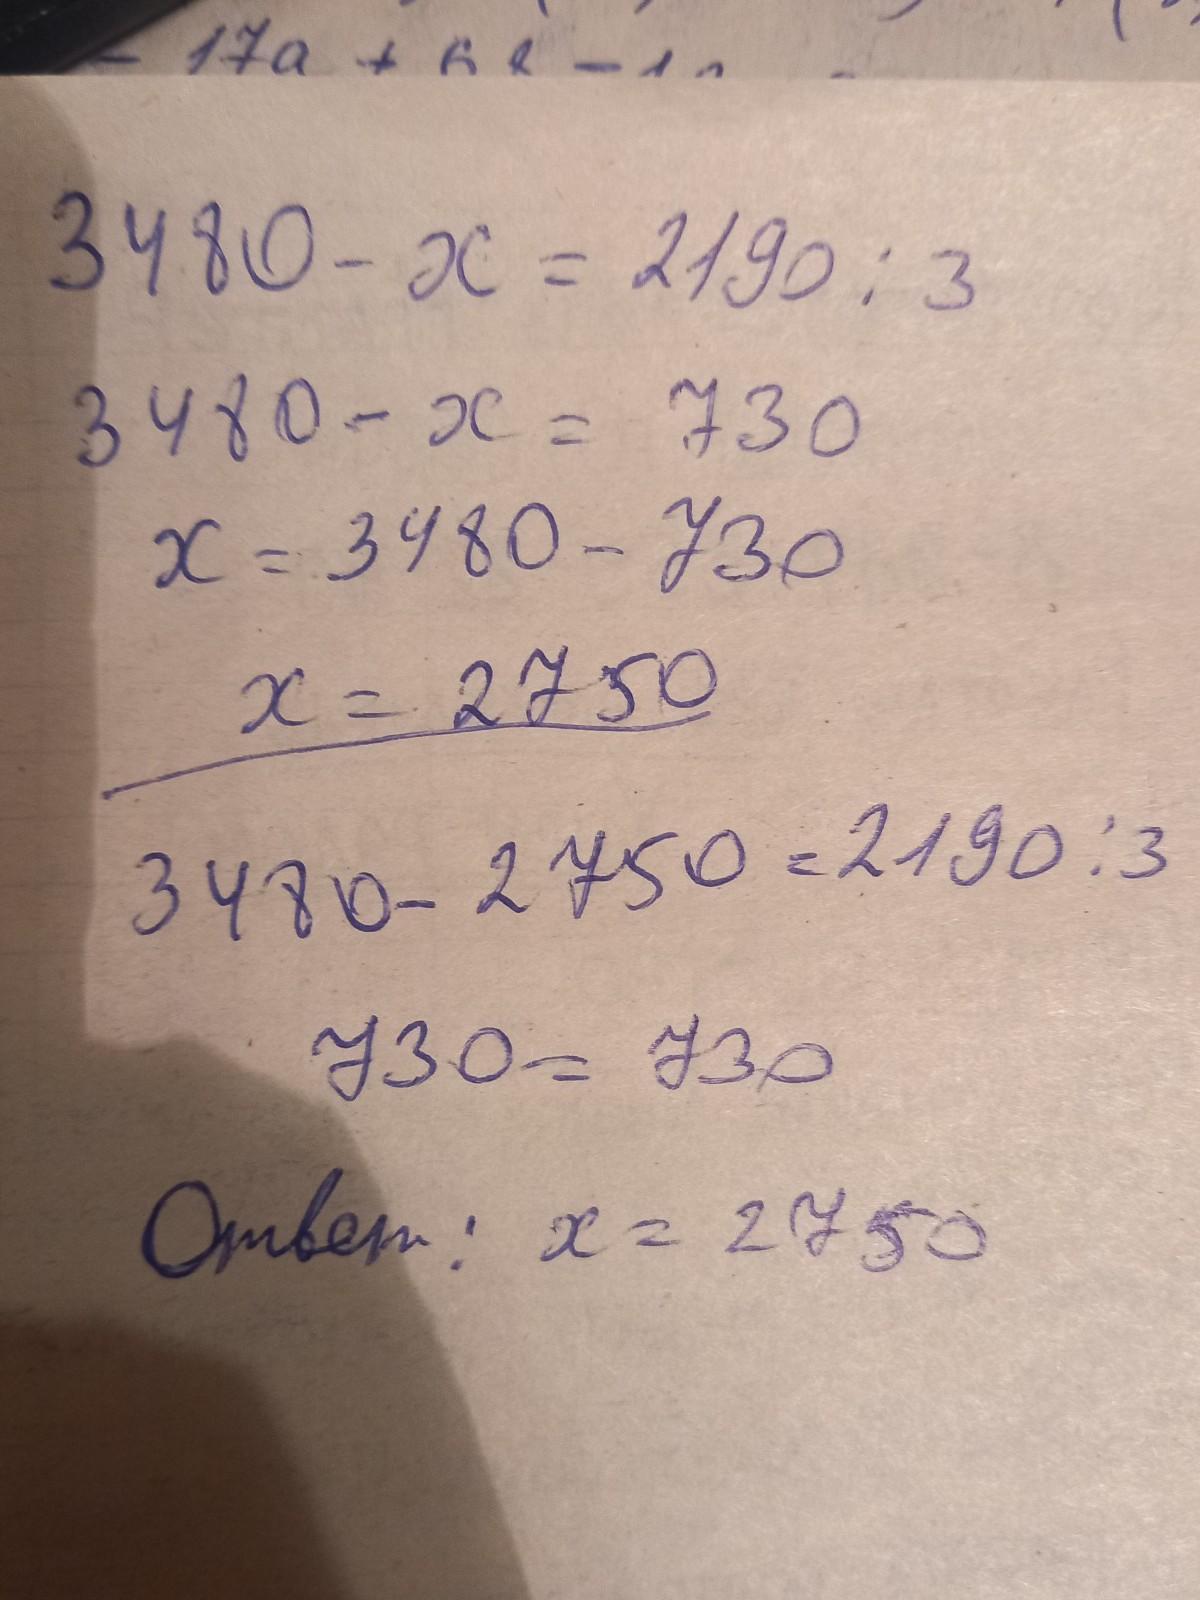 - 17a +
3480 - x = 2190 : 3
3480 - x = 730
x = 3480 - 730
x = 2750
3480 - 2750 = 2190 : 3
730 = 730
Ответ: x = 2750